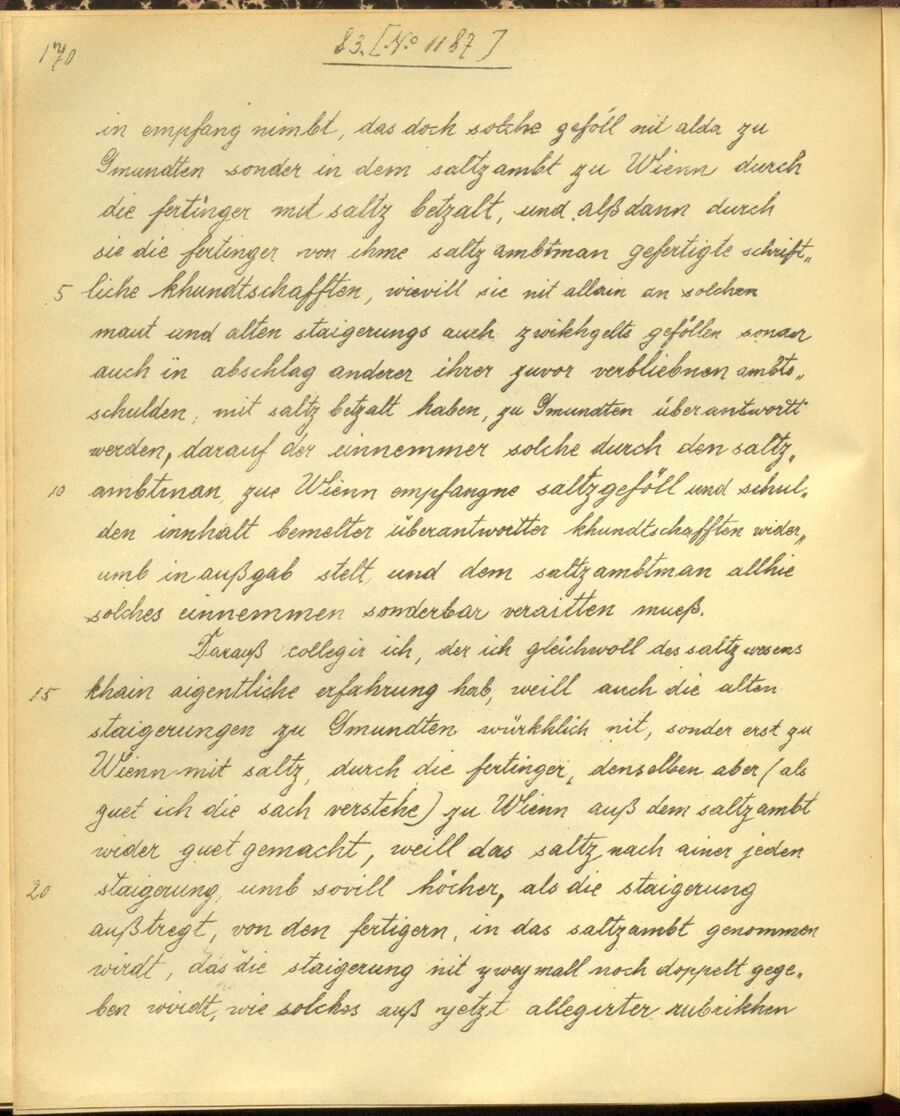 170
83. [No 1187]
in empfang nimbt, das doch solche geföll nit alda zu
Gmundten sonder in dem saltzambt zu Wienn durch
die fertinger mit saltz betzalt, und alß dann durch
sie die fertinger von ihme saltzambtman gefertigte schrift„
5 liche khundtschafften, wievill sie nit allain an solchen
maut und alten staigerungs auch zwikhgelts geföllen sonder
auch in abschlag anderer ihrer zuvor verbliebnen ambts„
schulden, mit saltz betzalt haben, zu Gmundten überantwortt
werden, darauf der einnemmer solche durch den saltz„
10 ambtman zue Wienn empfangne saltzgeföll und schul„
den innhalt bemelter überantwortter khundtschafften wider„
umb in außgab stelt, und dem saltzambtman allhie
solches einnemmen sonderbar veraitten mueß.
Darauß collegir ich, der ich gleichwoll des saltzwesens
15 khain aigentliche erfahrung hab, weill auch die alten
staigerungen zu Gmundten würkhlich nit, sonder erst zu
Wienn mit saltz, durch die fertinger, denselben aber (als
guet ich die sach verstehe) zu Wienn auß dem saltzambt
wider guet gemacht, weill das saltz nach ainer jeden
20 staigerung, umb sovill höcher, als die staigerung
außtregt, von den fertigern, in das saltzambt genommen
wirdt, das die staigerung nit zweymall noch doppelt gege„
ben wirdt, wie solches auß yetzt allegirter rubrikhen